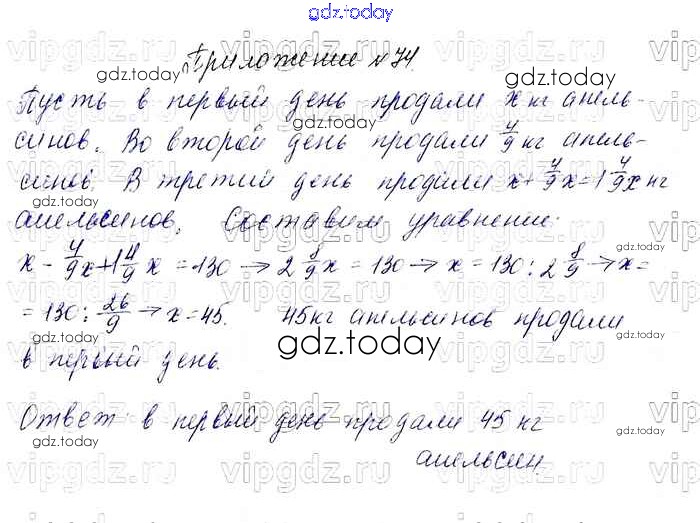 gdz.today
Приложение №74
Пусть в первый день продали x кг апель-
синов. Во второй день продали 4/9 кг апель-
синов. В третий день продали x+4/9x=1 4/9x кг
апельсинов. Составим уравнение:
x - 4/9x+1 4/9 x = 130 → 2 8/9 x = 130 → x = 130 : 2 8/9 → x=
= 130 : 26/9 → x=45. 45 кг апельсинов продали
в первый день.
Ответ: в первый день продали 45 кг
апельсин.
vipgdz.ru
gdz.today